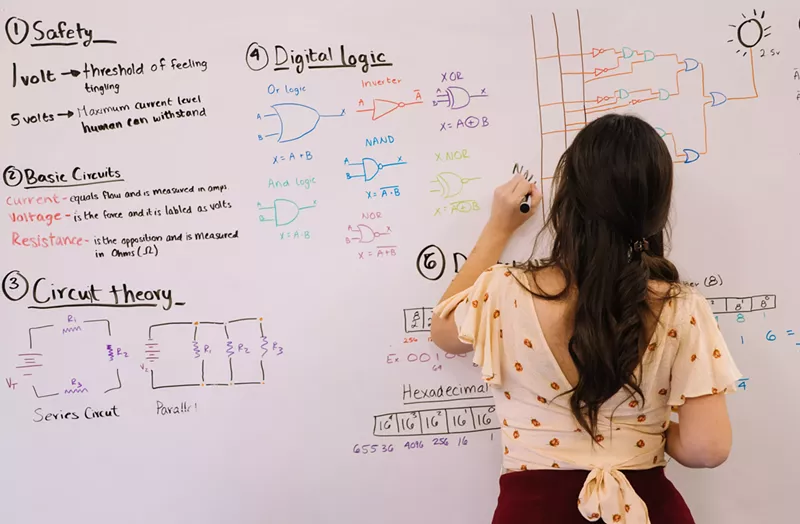 ① Safety
1 volt → threshold of feeling
tingling
5 volts → Maximum current level
human can withstand
② Basic Circuits
Current - equals flow and is measured in amps
Voltage - is the force and it is labled as volts
Resistance - is the opposition and is measured
in Ohms (Ω)
③ Circuit theory
R1
R2
R3
VT
Series Circut
R1
R2
R3
Parallel
④ Digital logic
Or logic
A
B
X
X = A + B
Inverter
A
A̅
XOR
A
B
X
X = A ⊕ B
NAND
A
B
X
X = \overline{A · B}
X NOR
X = \overline{A ⊕ B}
And logic
A
B
X
X = A · B
NOR
X = \overline{A + B}
2.5v
(8)
8¹ 8⁰
8 1
1 6 =
Ex. 00100
64
Hexadecimal
16⁴ 16³ 16² 16¹ 16⁰
65536 4096 256 16 1